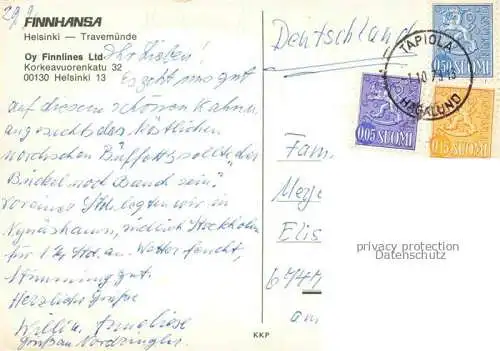 29.9.
FINNHANSA
Helsinki — Travemünde
Oy Finnlines Ltd
Korkeavuorenkatu 32
00130 Helsinki 13
Ihr Lieben!
Es geht uns gut
auf diesem schönen Kahn u.
angesichts des köstlichen
nordischen Büffetts sollte der
Buckel noch Bauch sein.
Vor einer Std. legten wir in
Nynäshamn, südlich Stockholm
für 1½ Std. an. Wetter feucht,
Stimmung gut.
Herzliche Grüße
Willi u. Anneliese
KKP
Deutschland
TAPIOLA
HAGALUND
0,50 SUOMI
0,05 SUOMI
0,15 SUOMI
Fam.
Elis
am
privacy protection
Datenschutz